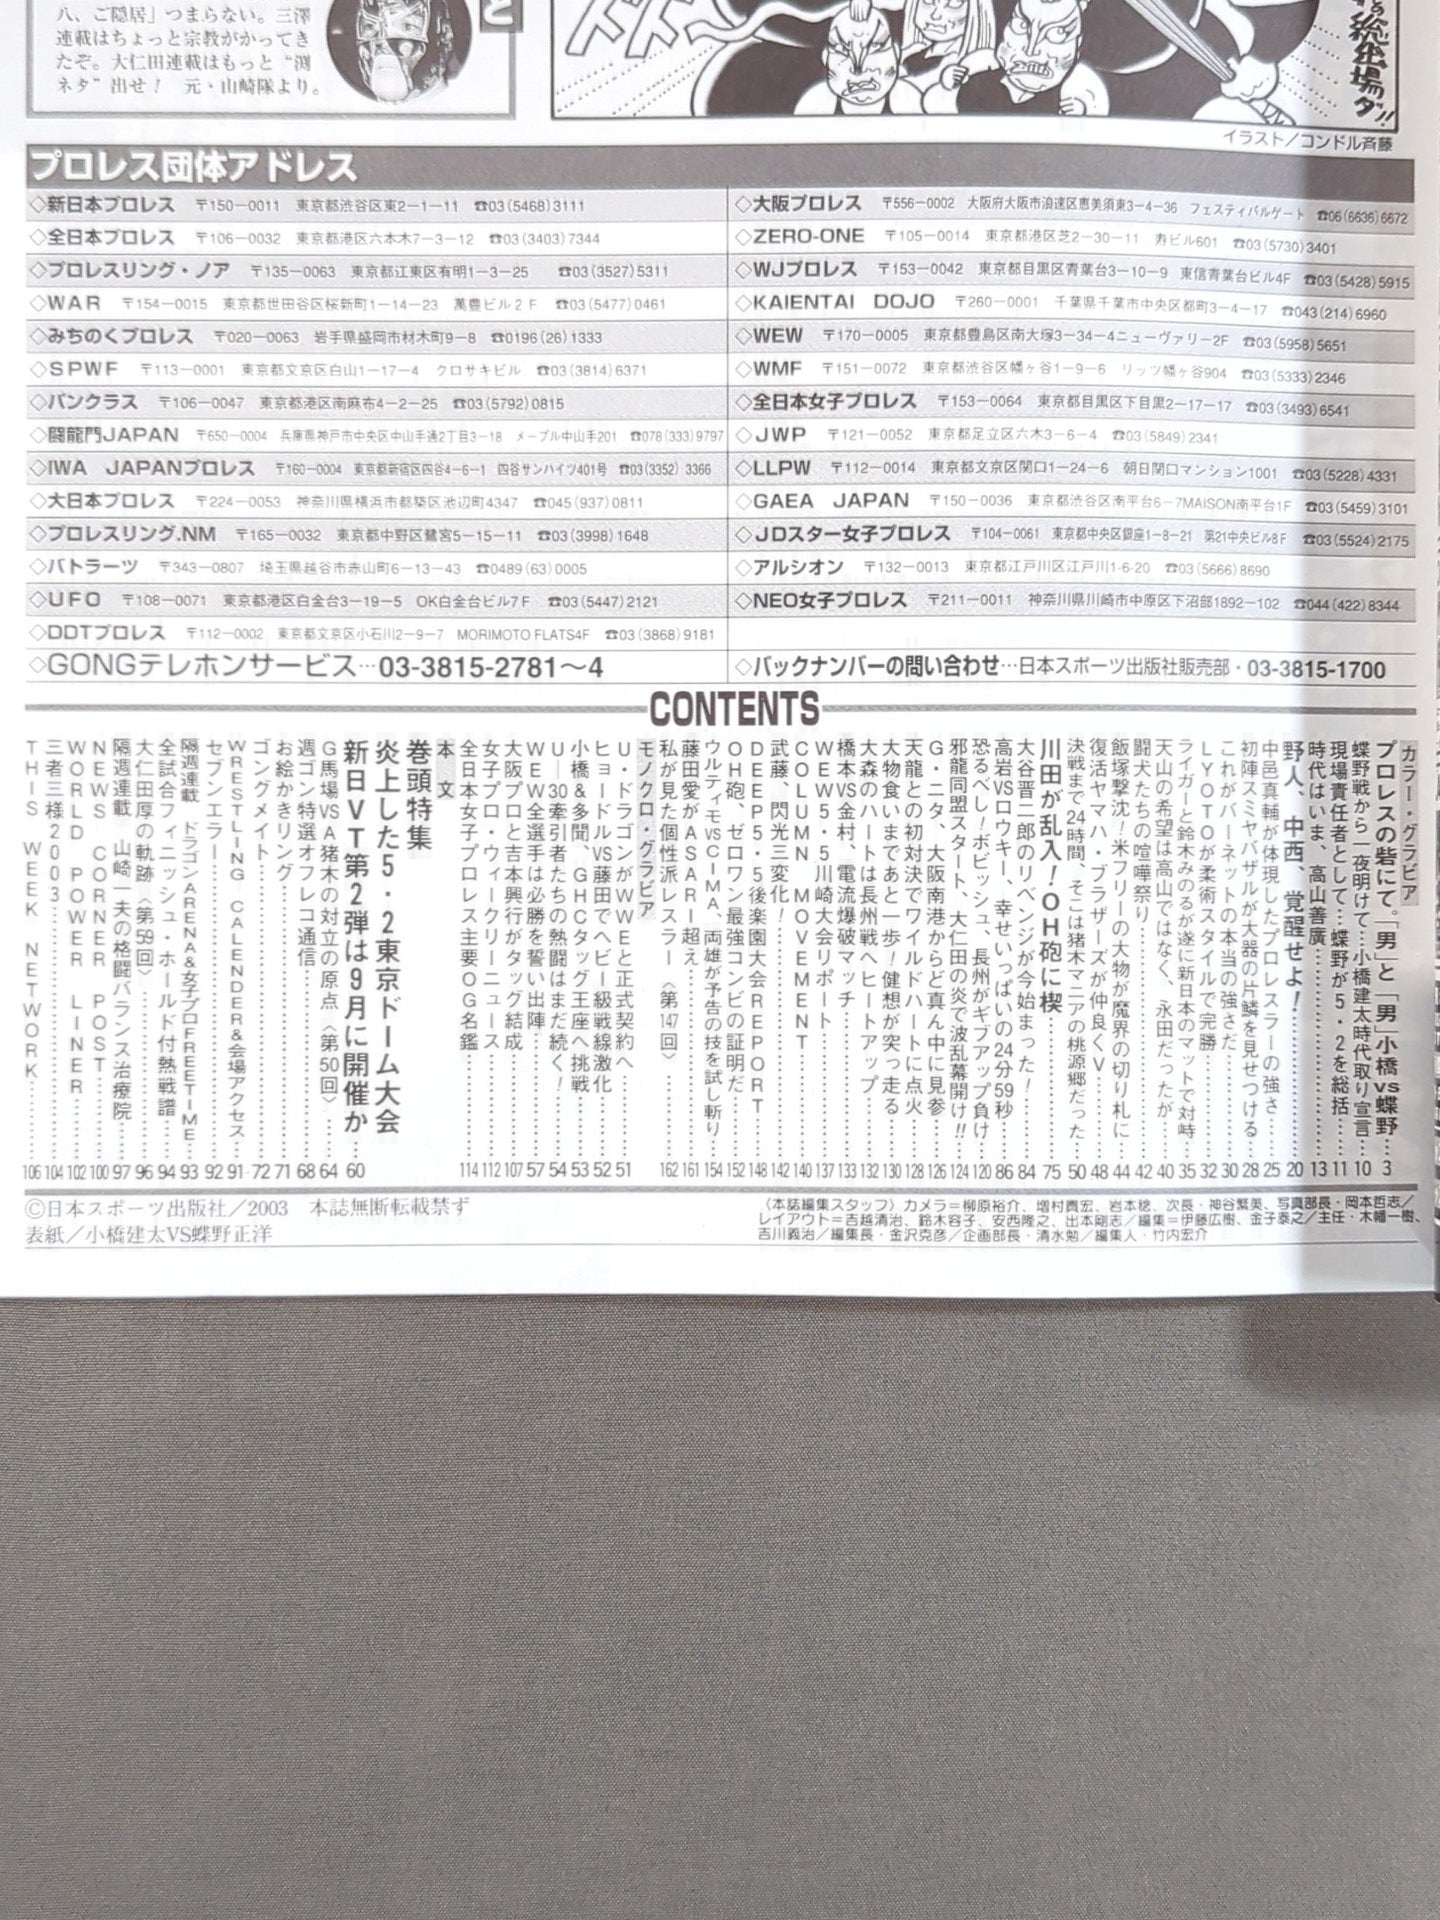 八、ご隠居」つまらない。三澤
連載はちょっと宗教がかってき
たぞ。大仁田連載はもっと“渕
ネタ”出せ！　元・山崎隊より。
と
総出場ダ!!
イラスト／コンドル斉藤
プロレス団体アドレス
◇新日本プロレス　〒150－0011　東京都渋谷区東2－1－11　☎03(5468)3111
◇全日本プロレス　〒106－0032　東京都港区六本木7－3－12　☎03(3403)7344
◇プロレスリング・ノア　〒135－0063　東京都江東区有明1－3－25　☎03(3527)5311
◇WAR　〒154－0015　東京都世田谷区桜新町1－14－23　萬豊ビル2F　☎03(5477)0461
◇みちのくプロレス　〒020－0063　岩手県盛岡市材木町9－8　☎0196(26)1333
◇SPWF　〒113－0001　東京都文京区白山1－17－4　クロサキビル　☎03(3814)6371
◇パンクラス　〒106－0047　東京都港区南麻布4－2－25　☎03(5792)0815
◇闘龍門JAPAN　〒650－0004　兵庫県神戸市中央区中山手通2丁目3－18　メープル中山手201　☎078(333)9797
◇IWA　JAPANプロレス　〒160－0004　東京都新宿区四谷4－6－1　四谷サンハイツ401号　☎03(3352)3366
◇大日本プロレス　〒224－0053　神奈川県横浜市都築区池辺町4347　☎045(937)0811
◇プロレスリング.NM　〒165－0032　東京都中野区鷺宮5－15－11　☎03(3998)1648
◇バトラーツ　〒343－0807　埼玉県越谷市赤山町6－13－43　☎0489(63)0005
◇UFO　〒108－0071　東京都港区白金台3－19－5　OK白金台ビル7F　☎03(5447)2121
◇DDTプロレス　〒112－0002　東京都文京区小石川2－9－7　MORIMOTO FLATS4F　☎03(3868)9181
◇GONGテレホンサービス…03-3815-2781～4
◇大阪プロレス　〒556－0002　大阪府大阪市浪速区恵美須東3－4－36　フェスティバルゲート　☎06(6636)6672
◇ZERO-ONE　〒105－0014　東京都港区芝2－30－11　寿ビル601　☎03(5730)3401
◇WJプロレス　〒153－0042　東京都目黒区青葉台3－10－9　東信青葉台ビル4F　☎03(5428)5915
◇KAIENTAI　DOJO　〒260－0001　千葉県千葉市中央区都町3－4－17　☎043(214)6960
◇WEW　〒170－0005　東京都豊島区南大塚3－34－4ニューヴァリー2F　☎03(5958)5651
◇WMF　〒151－0072　東京都渋谷区幡ヶ谷1－9－6　リッツ幡ヶ谷904　☎03(5333)2346
◇全日本女子プロレス　〒153－0064　東京都目黒区下目黒2－17－17　☎03(3493)6541
◇JWP　〒121－0052　東京都足立区六木3－6－4　☎03(5849)2341
◇LLPW　〒112－0014　東京都文京区関口1－24－6　朝日関口マンション1001　☎03(5228)4331
◇GAEA　JAPAN　〒150－0036　東京都渋谷区南平台6－7MAISON南平台1F　☎03(5459)3101
◇JDスター女子プロレス　〒104－0061　東京都中央区銀座1－8－21　第21中央ビル8F　☎03(5524)2175
◇アルシオン　〒132－0013　東京都江戸川区江戸川1-6-20　☎03(5666)8690
◇NEO女子プロレス　〒211－0011　神奈川県川崎市中原区下沼部1892－102　☎044(422)8344
◇バックナンバーの問い合わせ…日本スポーツ出版社販売部・03-3815-1700
CONTENTS
カラー・グラビア
プロレスの砦にて。「男」と「男」小橋vs蝶野……3
蝶野戦から一夜明けて…小橋建太時代取り宣言…10
現場責任者として…蝶野が5・2を総括……11
時代はいま、高山善廣……13
野人、中西、覚醒せよ！……20
中邑真輔が体現したプロレスラーの強さ……25
初陣スミヤバザルが大器の片鱗を見せつける……28
これがバーネットの本当の強さだ……30
LYOTOが柔術スタイルで完勝……32
ライガーと鈴木みのるが遂に新日本のマットで対峙…35
天山の希望は高山ではなく、永田だったが……40
闘犬たちの喧嘩祭り……42
飯塚撃沈！米フリーの大物が魔界の切り札に……44
復活ヤマハ・ブラザーズが仲良くV……48
決戦まで24時間、そこは猪木マニアの桃源郷だった…50
川田が乱入！OH砲に楔……75
大谷晋二郎のリベンジが今始まった！……84
高岩VSロウキー、幸せいっぱいの24分59秒……86
恐るべし！ボビッシュ、長州がギブアップ負け……120
邪龍同盟スタート、大仁田の炎で波乱幕開け!!…124
G・ニタ、大阪南港からど真ん中に見参……126
天龍との初対決でワイルドハートに点火……128
大物食いまであと一歩！健想が突っ走る……130
大森のハートは長州戦へヒートアップ……132
橋本VS金村、電流爆破マッチ……133
WEW5・5川崎大会リポート……137
COLUMN　MOVEMENT……140
武藤、閃光三変化！……142
DEEP5・5後楽園大会REPORT……148
OH砲、ゼロワン最強コンビの証明だ……152
ウルティモVSCIMA、両雄が予告の技を試し斬り…154
藤田愛がASARI超え……161
私が見た個性派レスラー〈第147回〉……162
モノクロ・グラビア
U・ドラゴンがWWEと正式契約へ……51
ヒョードルVS藤田でヘビー級戦線激化……52
小橋＆多聞、GHCタッグ王座へ挑戦……53
U－30牽引者たちの熱闘はまだ続く！……54
WEW全選手は必勝を誓い出陣……57
大阪プロと吉本興行がタッグ結成……107
女子プロ・ウィークリーニュース……112
全日本女子プロレス主要OG名鑑……114
本文
巻頭特集
炎上した5・2東京ドーム大会
新日VT第2弾は9月に開催か……60
G馬場VSA猪木の対立の原点〈第50回〉……64
週ゴン特選オフレコ通信……68
お絵かきリング……71
ゴングメイト……72
WRESTLING　CALENDER＆会場アクセス…91
セブンエラー……92
隔週連載　ドラゴンARENA＆女子プロFREETIME…93
全試合フィニッシュ・ホールド付熱戦譜……94
大仁田厚の軌跡〈第59回〉……96
隔週連載　山崎一夫の格闘バランス治療院……97
NEWS　CORNER　POST……100
WORLD　POWER　LINER……102
三者三様2003……104
THIS　WEEK　NETWORK……106
©日本スポーツ出版社／2003　本誌無断転載禁ず
表紙／小橋建太VS蝶野正洋
〈本誌編集スタッフ〉カメラ＝柳原裕介、増村貴宏、岩本稔、次長・神谷繁美、写真部長・岡本哲志／
レイアウト＝吉越清治、鈴木容子、安西隆之、出本剛志／編集＝伊藤広樹、金子泰之／主任・木幡一樹、
吉川義治／編集長・金沢克彦／企画部長・清水勉／編集人・竹内宏介